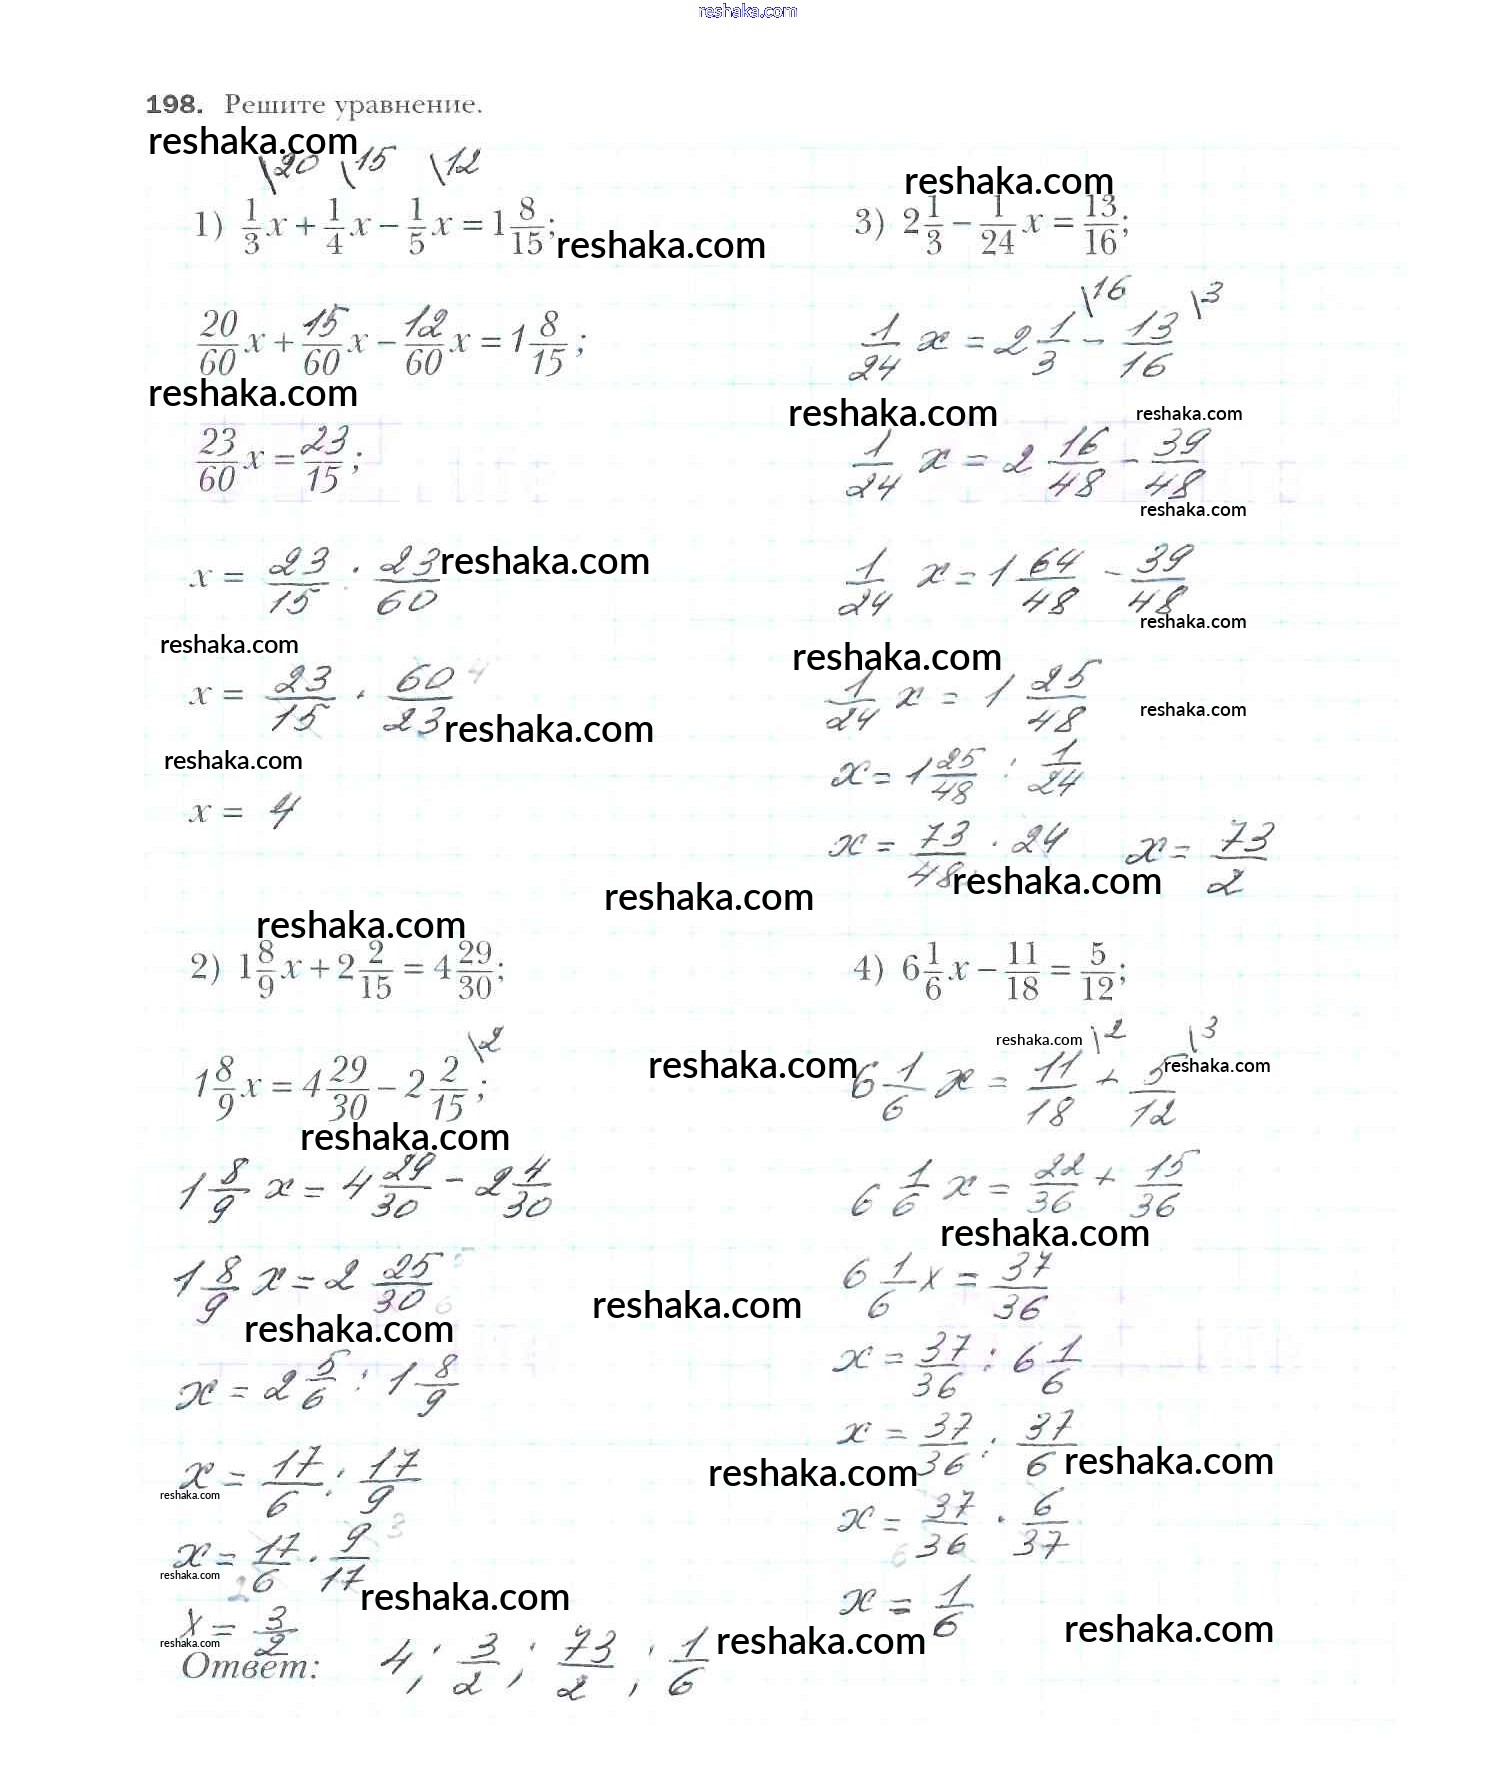 reshaka.com
198. Решите уравнение.
reshaka.com
\20 \15 \12
1) 1/3 x + 1/4 x − 1/5 x = 1 8/15;
reshaka.com
20/60 x + 15/60 x − 12/60 x = 1 8/15;
reshaka.com
23/60 x = 23/15;
x = 23/15 : 23/60
reshaka.com
reshaka.com
x = 23/15 · 60/23 4
reshaka.com
reshaka.com
x = 4
reshaka.com
3) 2 1/3 − 1/24 x = 13/16;
\16 \3
1/24 x = 2 1/3 − 13/16
reshaka.com
reshaka.com
1/24 x = 2 16/48 − 39/48
reshaka.com
1/24 x = 1 64/48 − 39/48
reshaka.com
reshaka.com
1/24 x = 1 25/48
reshaka.com
x = 1 25/48 : 1/24
x = 73/48 · 24 x = 73/2
reshaka.com
reshaka.com
reshaka.com
2) 1 8/9 x + 2 2/15 = 4 29/30;
\2
1 8/9 x = 4 29/30 − 2 2/15;
reshaka.com
1 8/9 x = 4 29/30 − 2 4/30
1 8/9 x = 2 25/30 5 6
reshaka.com
x = 2 5/6 : 1 8/9
x = 17/6 : 17/9
reshaka.com
x = 17/6 · 9/17 3 2
reshaka.com
reshaka.com
x = 3/2
reshaka.com
4) 6 1/6 x − 11/18 = 5/12;
reshaka.com
\2 \3
reshaka.com
6 1/6 x = 11/18 + 5/12
reshaka.com
6 1/6 x = 22/36 + 15/36
reshaka.com
6 1/6 x = 37/36
reshaka.com
x = 37/36 : 6 1/6
x = 37/36 : 37/6
reshaka.com
reshaka.com
x = 37/36 · 6/37 6
x = 1/6
reshaka.com
reshaka.com
Ответ: 4; 3/2; 73/2; 1/6